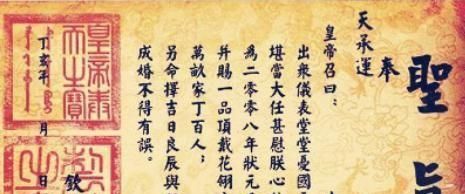 聖旨
奉
天承運
皇帝召曰：
出衆儀表堂堂憂國
堪當大任甚慰朕心
為二零零八年狀元
并賜一品頂戴花翎
萬畝家丁百人；
另命擇吉日良辰與
成婚不得有誤。
欽
丁亥年 月 日
皇帝奉
天之寶